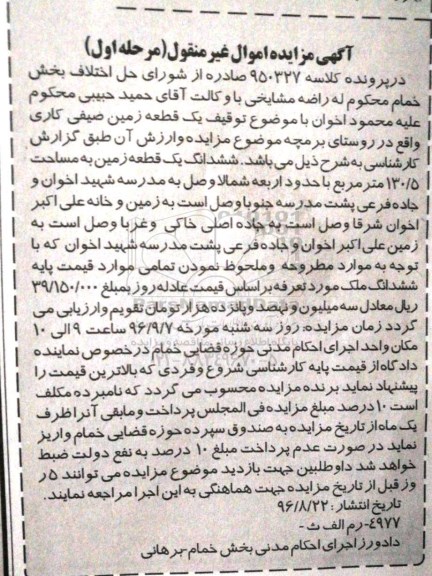 آگهی مزایده اموال غیر منقول (مرحله اول)
درپرونده کلاسه ۹۵۰۳۲۷ صادره از شورای حل اختلاف بخش
خمام محکوم له راضه مشایخی با وکالت آقای حمید حبیبی محکوم
علیه محمود اخوان با موضوع توقیف یک قطعه زمین صیفی کاری
واقع در روستای برمچه موضوع مزایده وارزش آن طبق گزارش
کارشناسی به شرح ذیل می باشد. ششدانگ یک قطعه زمین به مساحت
۱۳۰/۵ متر مربع با حدود اربعه شمالا وصل به مدرسه شهید اخوان و
جاده فرعی پشت مدرسه جنوبا وصل است به زمین و خانه علی اکبر
اخوان شرقا وصل است به جاده اصلی خاکی وغربا وصل است به
زمین علی اکبر اخوان و جاده فرعی پشت مدرسه شهید اخوان که با
توجه به موارد مطروحه وملحوظ نمودن تمامی موارد قیمت پایه
ششدانگ ملک مورد تعرفه بر اساس قیمت عادله روز بمبلغ ۳۹/۱۵۰/۰۰۰
ریال معادل سه میلیون و نهصد و پانزده هزار تومان تقویم و ارزیابی می
گردد زمان مزایده: روز سه شنبه مورخه ۹۶/۹/۷ ساعت ۹ الی ۱۰
مکان واحد اجرای احکام مدنی حوزه قضایی خمام درخصوص نماینده
دادگاه از قیمت پایه کارشناسی شروع و فردی که بالاترین قیمت را
پیشنهاد نماید برنده مزایده محسوب می گردد که نامبرده مکلف
است ۱۰ درصد مبلغ مزایده فی المجلس پرداخت و مابقی آنرا ظرف
یک ماه از تاریخ مزایده به صندوق سپرده حوزه قضایی خمام واریز
نماید در صورت عدم پرداخت مبلغ ۱۰ درصد به نفع دولت ضبط
خواهد شد داوطلبین جهت بازدید موضوع مزایده می توانند ۵ ر
وز قبل از تاریخ مزایده جهت هماهنگی به این اجرا مراجعه نمایند.
تاریخ انتشار: ۹۶/۸/۲۲
۴۹۷۷- رم الف ث -
دادورز اجرای احکام مدنی بخش خمام-برهانی